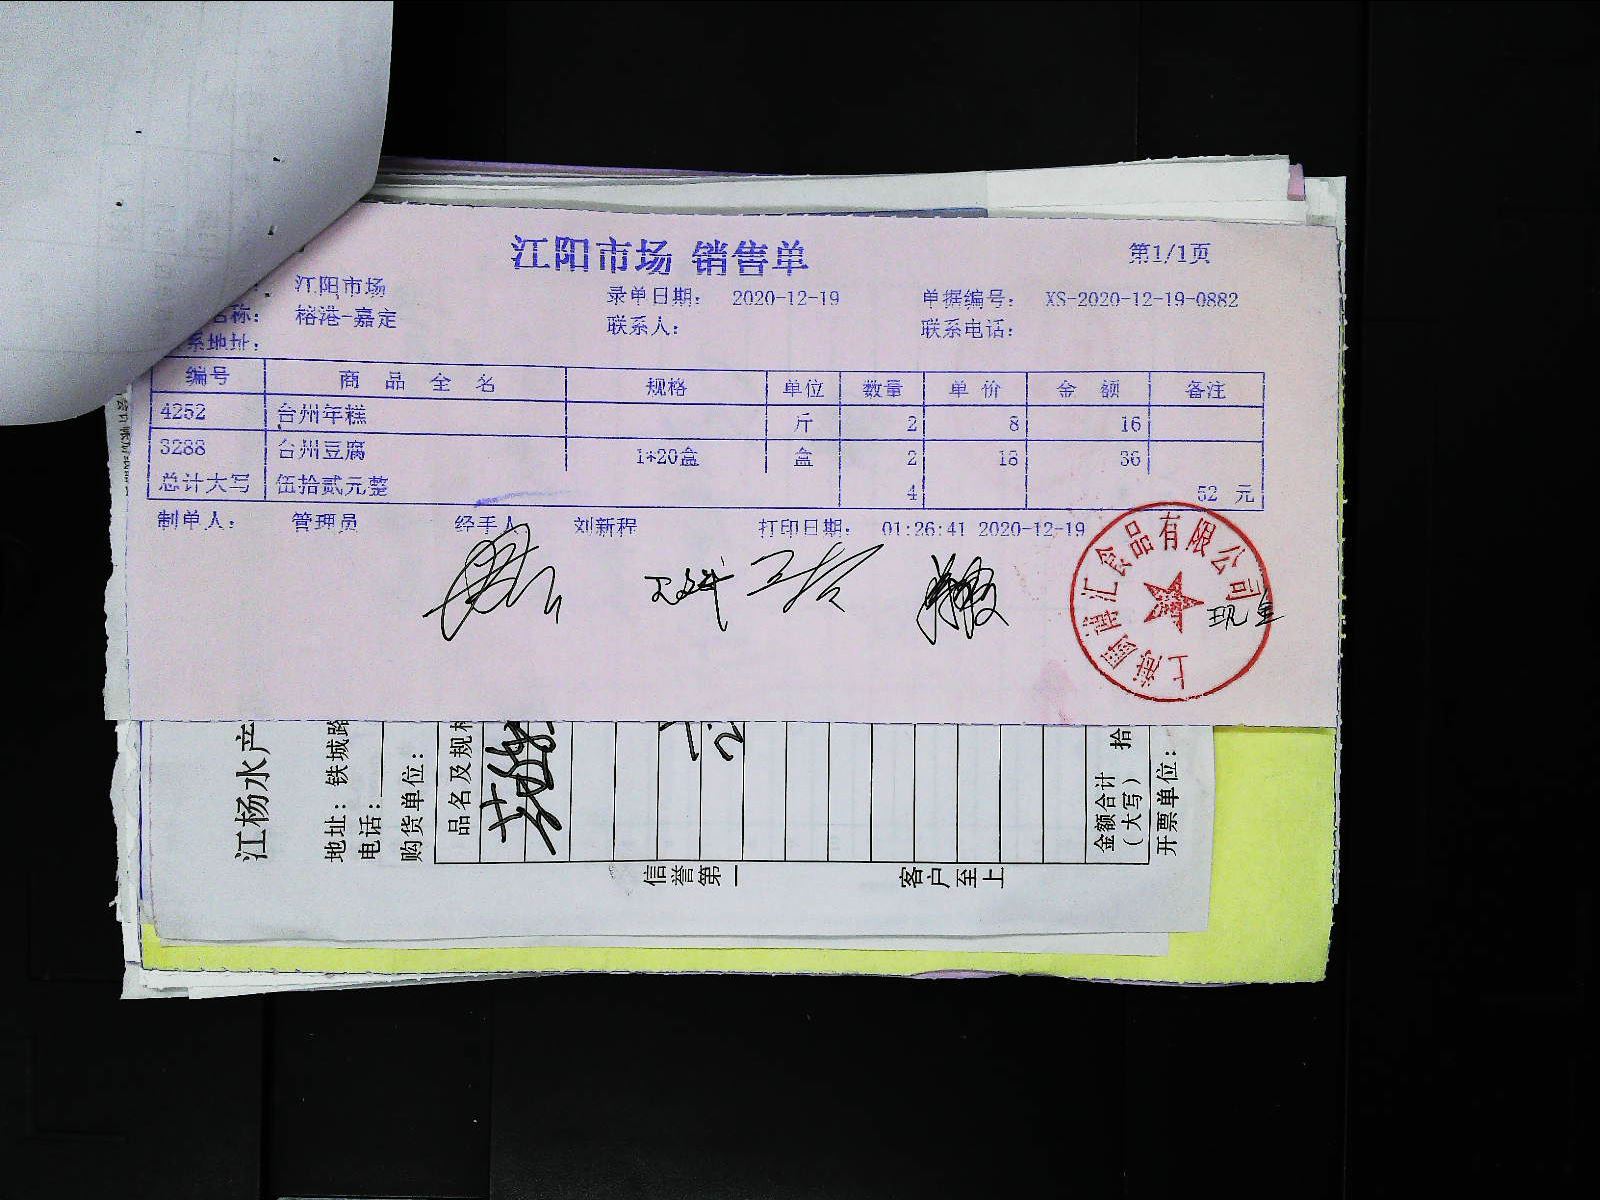 江阳市场 销售单
第1/1页
江阳市场
录单日期： 2020-12-19
单据编号： XS-2020-12-19-0882
名称： 榕港-嘉定
联系人：
联系电话：
系地址：
编号 商品全名 规格 单位 数量 单价 金额 备注
4252 台州年糕 斤 2 8 16
3288 台州豆腐 1*20盒 盒 2 18 36
总计大写 伍拾贰元整 4 52 元
制单人： 管理员 经手人 刘新程 打印日期： 01:26:41 2020-12-19
现金
江杨水产
地址：铁城路
电话：
购货单位：
品名及规格
金额合计
（大写）
拾
开票单位：
信誉第一
客户至上